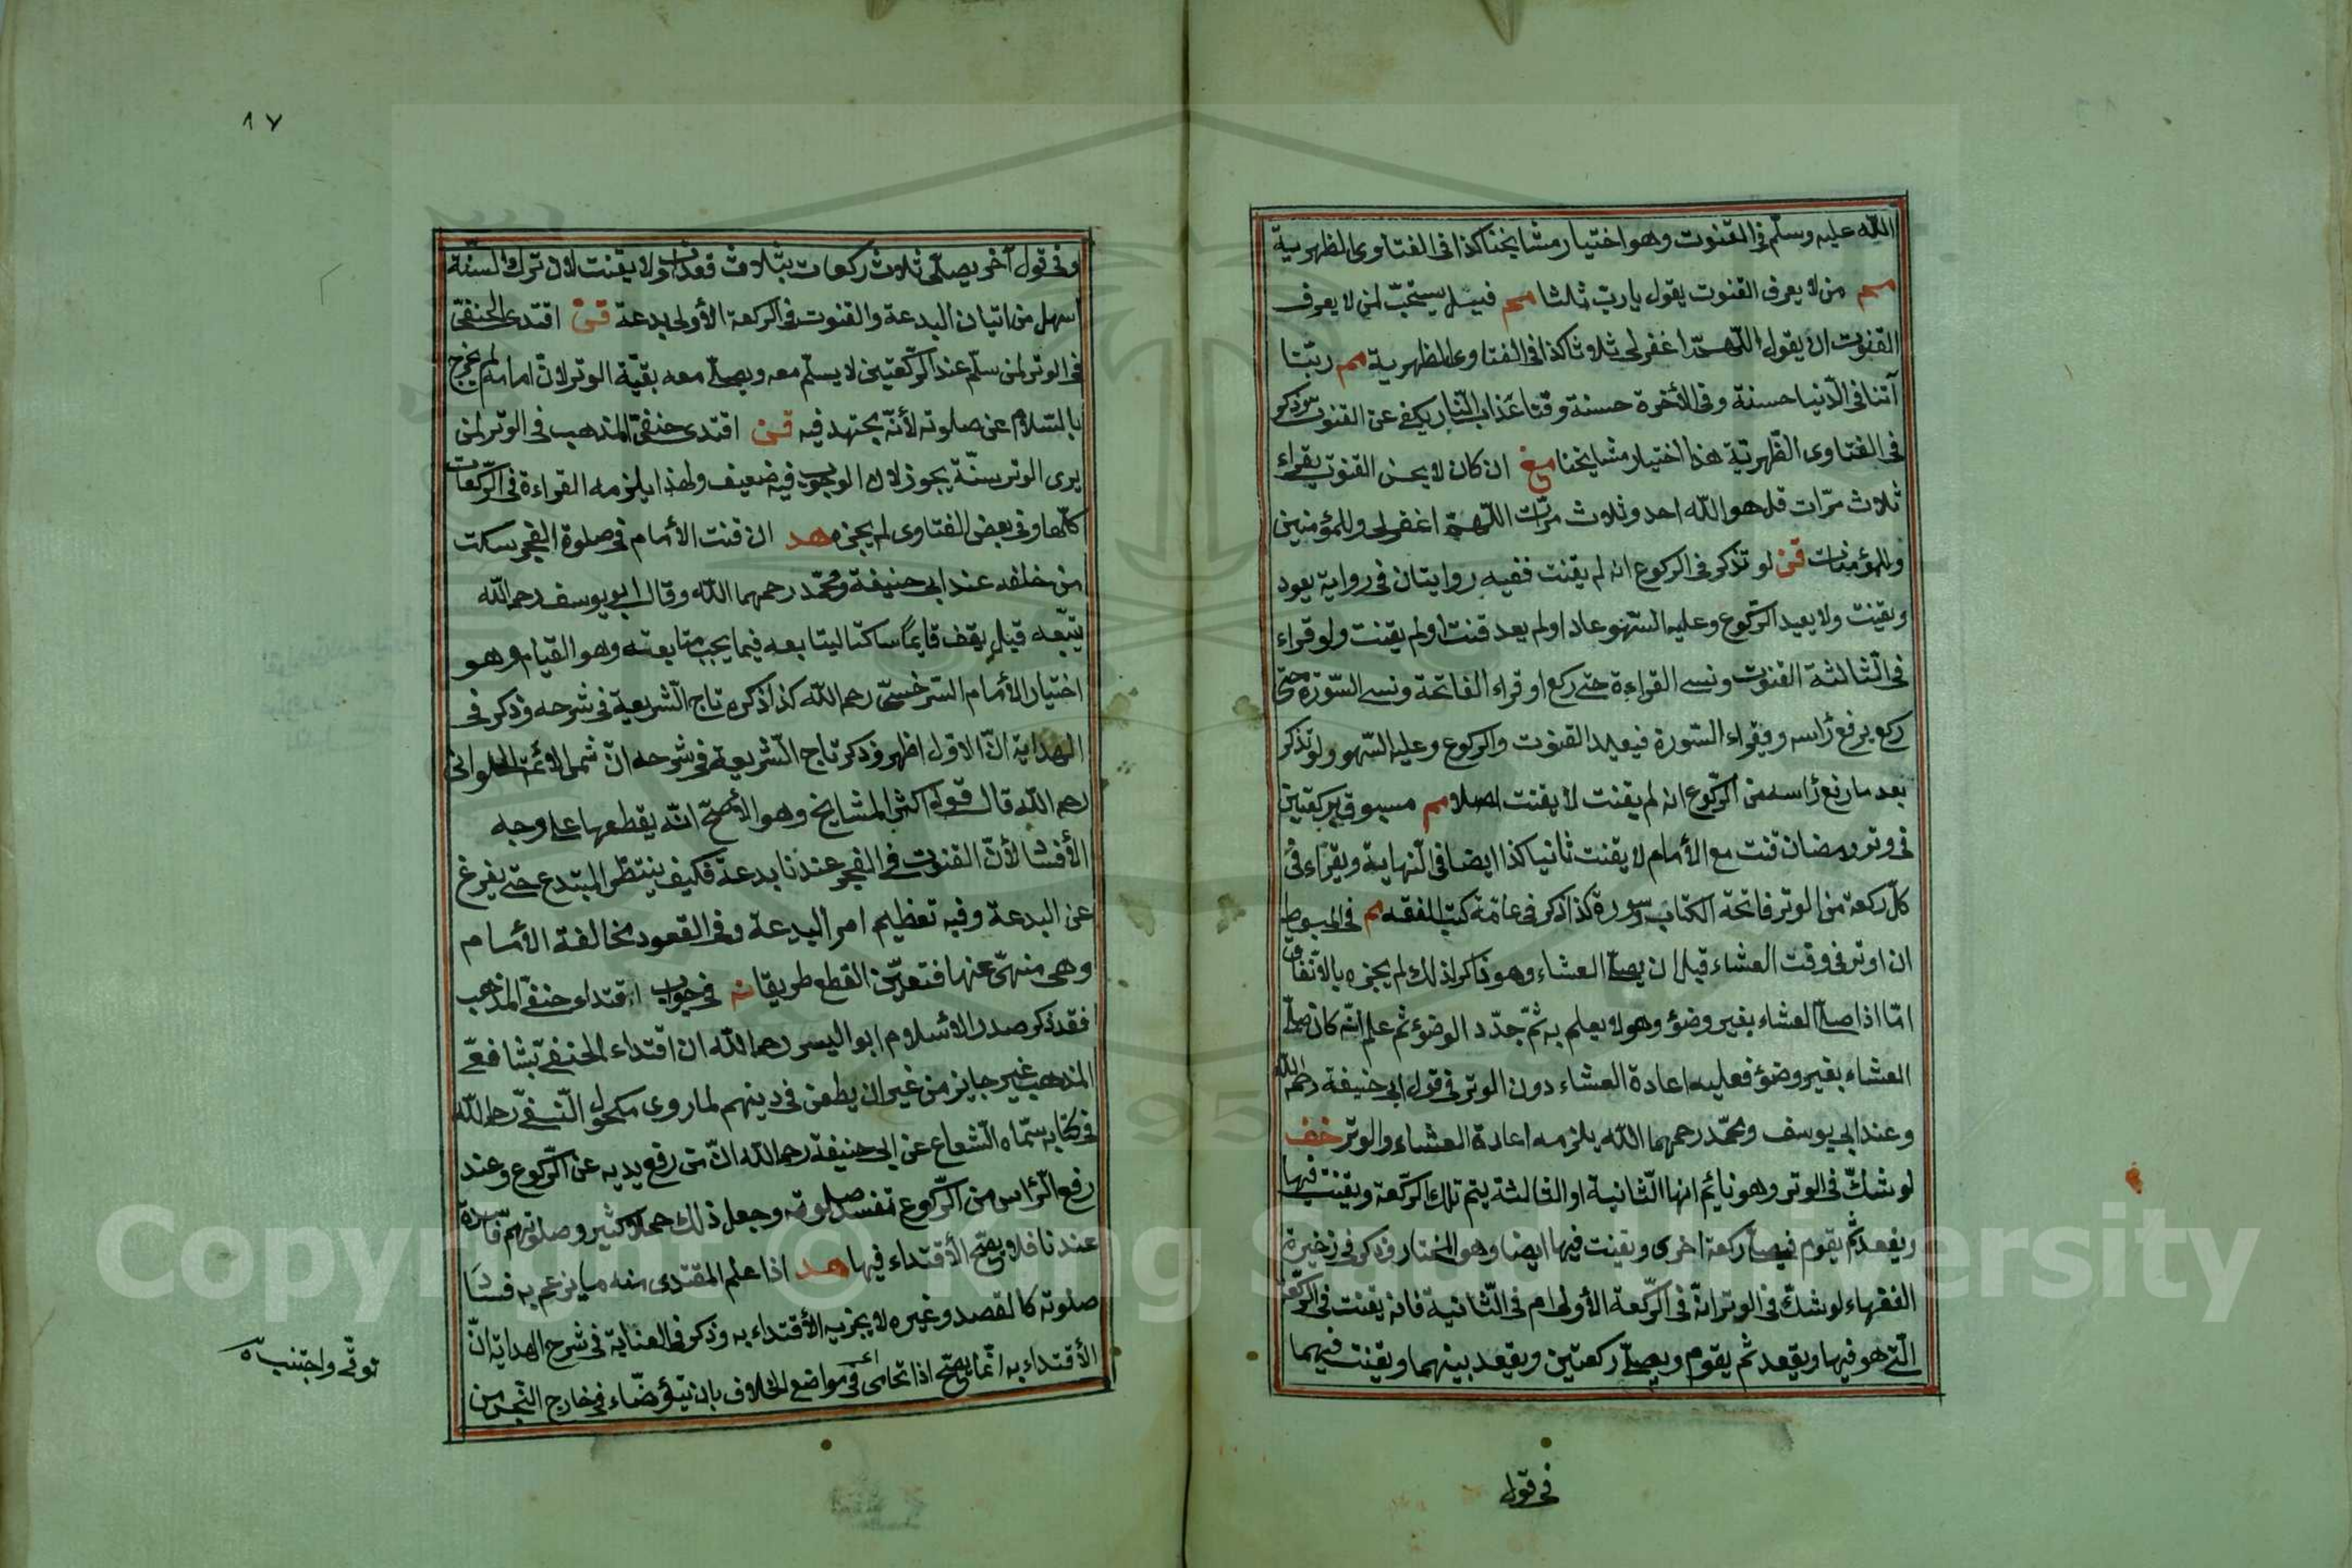 الله عليه وسلّم فى القنوت وهو اختيار مشايخنا كذا فى الفتاوى الظهرية
مم من لا يعرف القنوت يقول يا ربّ ثلثا مم قيل يستحبّ لمن لا يعرف
القنوت ان يقول اللّهمّ اغفر لى ثلاثا كذا فى الفتاوى الظهرية مم ربّنا
آتنا فى الدّنيا حسنة وفى الأخرة حسنة وقنا عذاب النّار يكفى عن القنوت وذكر
فى الفتاوى الظّهرية هذا اختيار مشايخنا مغ ان كان لا يحسن القنوت يقراء
ثلاث مرّات قل هو الله احد وثلاث مرّات اللّهمّ اغفر لى وللمؤمنين
وللمؤمنات قن لو تذكر فى الركوع انه لم يقنت ففيه روايتان فى رواية يعود
ويقنت ولا يعيد الرّكوع وعليه السّهو عاد او لم يعد قنت او لم يقنت ولو قراء
فى الثّالثة القنوت ونسى القراءة حتى ركع او قراء الفاتحة ونسى السّورة حتى
ركع يرفع رأسه ويقراء السّورة فيعيد القنوت والركوع وعليه السّهو ولو تذكر
بعد ما رفع رأسه من الرّكوع انه لم يقنت لا يقنت اصلا مم مسبوق بركعتين
فى وتر رمضان قنت مع الأمام لا يقنت ثانيا كذا ايضا فى النّهاية ويقراء فى
كلّ ركعة من الوتر فاتحة الكتاب وسورة كذا ذكر فى عامّة كتب الفقه مم فى المبسوط
ان اوتر فى وقت العشاء قبل ان يصلّى العشاء وهو ذاكر لذلك لم يجزه بالاتّفاق
امّا اذا صلّى العشاء بغير وضؤ وهو لا يعلم به ثمّ جدّد الوضؤ ثم علم انّه كان صلّى
العشاء بغير وضؤ فعليه اعادة العشاء دون الوتر فى قول ابى حنيفة رحمه الله
وعند ابى يوسف ومحمّد رحمهما الله يلزمه اعادة العشاء والوتر خف
لو شكّ فى الوتر وهو نايم انها الثّانية او الثالثة يتم تلك الرّكعة ويقنت فيها
ويقعد ثم يقوم فيصلّى ركعة اخرى ويقنت فيها ايضا وهو المختار وذكر فى ذخيرة
الفقهاء لو شكّ فى الوتر انّه فى الرّكعة الأولى ام فى الثّانية فانه يقنت فى الرّكعة
الّتى هو فيها ويقعد ثم يقوم ويصلّى ركعتين ويقعد بينهما ويقنت فيهما
فى قول
١٧
وفى قول آخر يصلّى ثلاث ركعات بثلاث قعدات ولا يقنت لان ترك السنّة
اسهل من اتيان البدعة والقنوت فى الركعة الأولى بدعة قن اقتدى الحنفىّ
فى الوتر لمن سلّم عند الرّكعتين لا يسلّم معه ويصلّى معه بقيّة الوتر لانّ امامه لم يخرج
بالسّلام عن صلوته لأنّه يجتهد فيه قن اقتدى حنفىّ المذهب فى الوتر لمن
يرى الوتر سنّة يجوز لان الوجوب فيه ضعيف ولهذا يلزمه القراءة فى الرّكعات
كلّها وفى بعض الفتاوى لم يجزه هد ان قنت الأمام فى صلوة الفجر سكت
من خلفه عند ابى حنيفة ومحمّد رحمهما الله وقال ابو يوسف رحمه الله
يتّبعه قيل يقف قايما ساكتا ليتابعه فيما يجب متابعته وهو القيام وهو
اختيار الأمام السّرخسىّ رحمه الله كذا ذكره تاج الشّريعة فى شرحه وذكر فى
الهداية انّ الاول اظهر وذكر تاج الشّريعة فى شرحه انّ شمس الائمّة الحلوانى
رحمه الله قال قول اكثر المشايخ وهو الأصحّ انّه يقطعها على وجه
الأفشا لأنّ القنوت فى الفجر عندنا بدعة فكيف ينتظر المبتدع حتى يفرغ
عن البدعة وفيه تعظيم امر البدعة وفى القعود مخالفة الأمام
وهى منهىّ عنها فتعيّن القطع طريقا نه فى جواب اقتداء حنفىّ المذهب
فقد ذكر صدر الاسلام ابو اليسر رحمه الله ان اقتداء الحنفى بشافعى
المذهب غير جايز من غير ان يطعن فى دينهم لما روى مكحول النّسفىّ رحمه الله
فى كتابه سمّاه الشعاع عن ابى حنيفة رحمه الله انّ من رفع يديه عن الرّكوع وعند
رفع الرّأس من الرّكوع تفسد صلوته وجعل ذلك عملا كثير وصلوتهم فاسدة
عندنا فلا يصحّ الأقتداء فيها هد اذا علم المقتدى منه ما يزعم به فسا
صلوته كالفصد وغيره لا يجزيه الأقتداء به وذكر فى العناية فى شرح الهداية انّ
الأقتداء به انّما يصحّ اذا تحامى فى مواضع الخلاف بان يتوضّاء فى خارج النّجس من
توقّى واجتنب